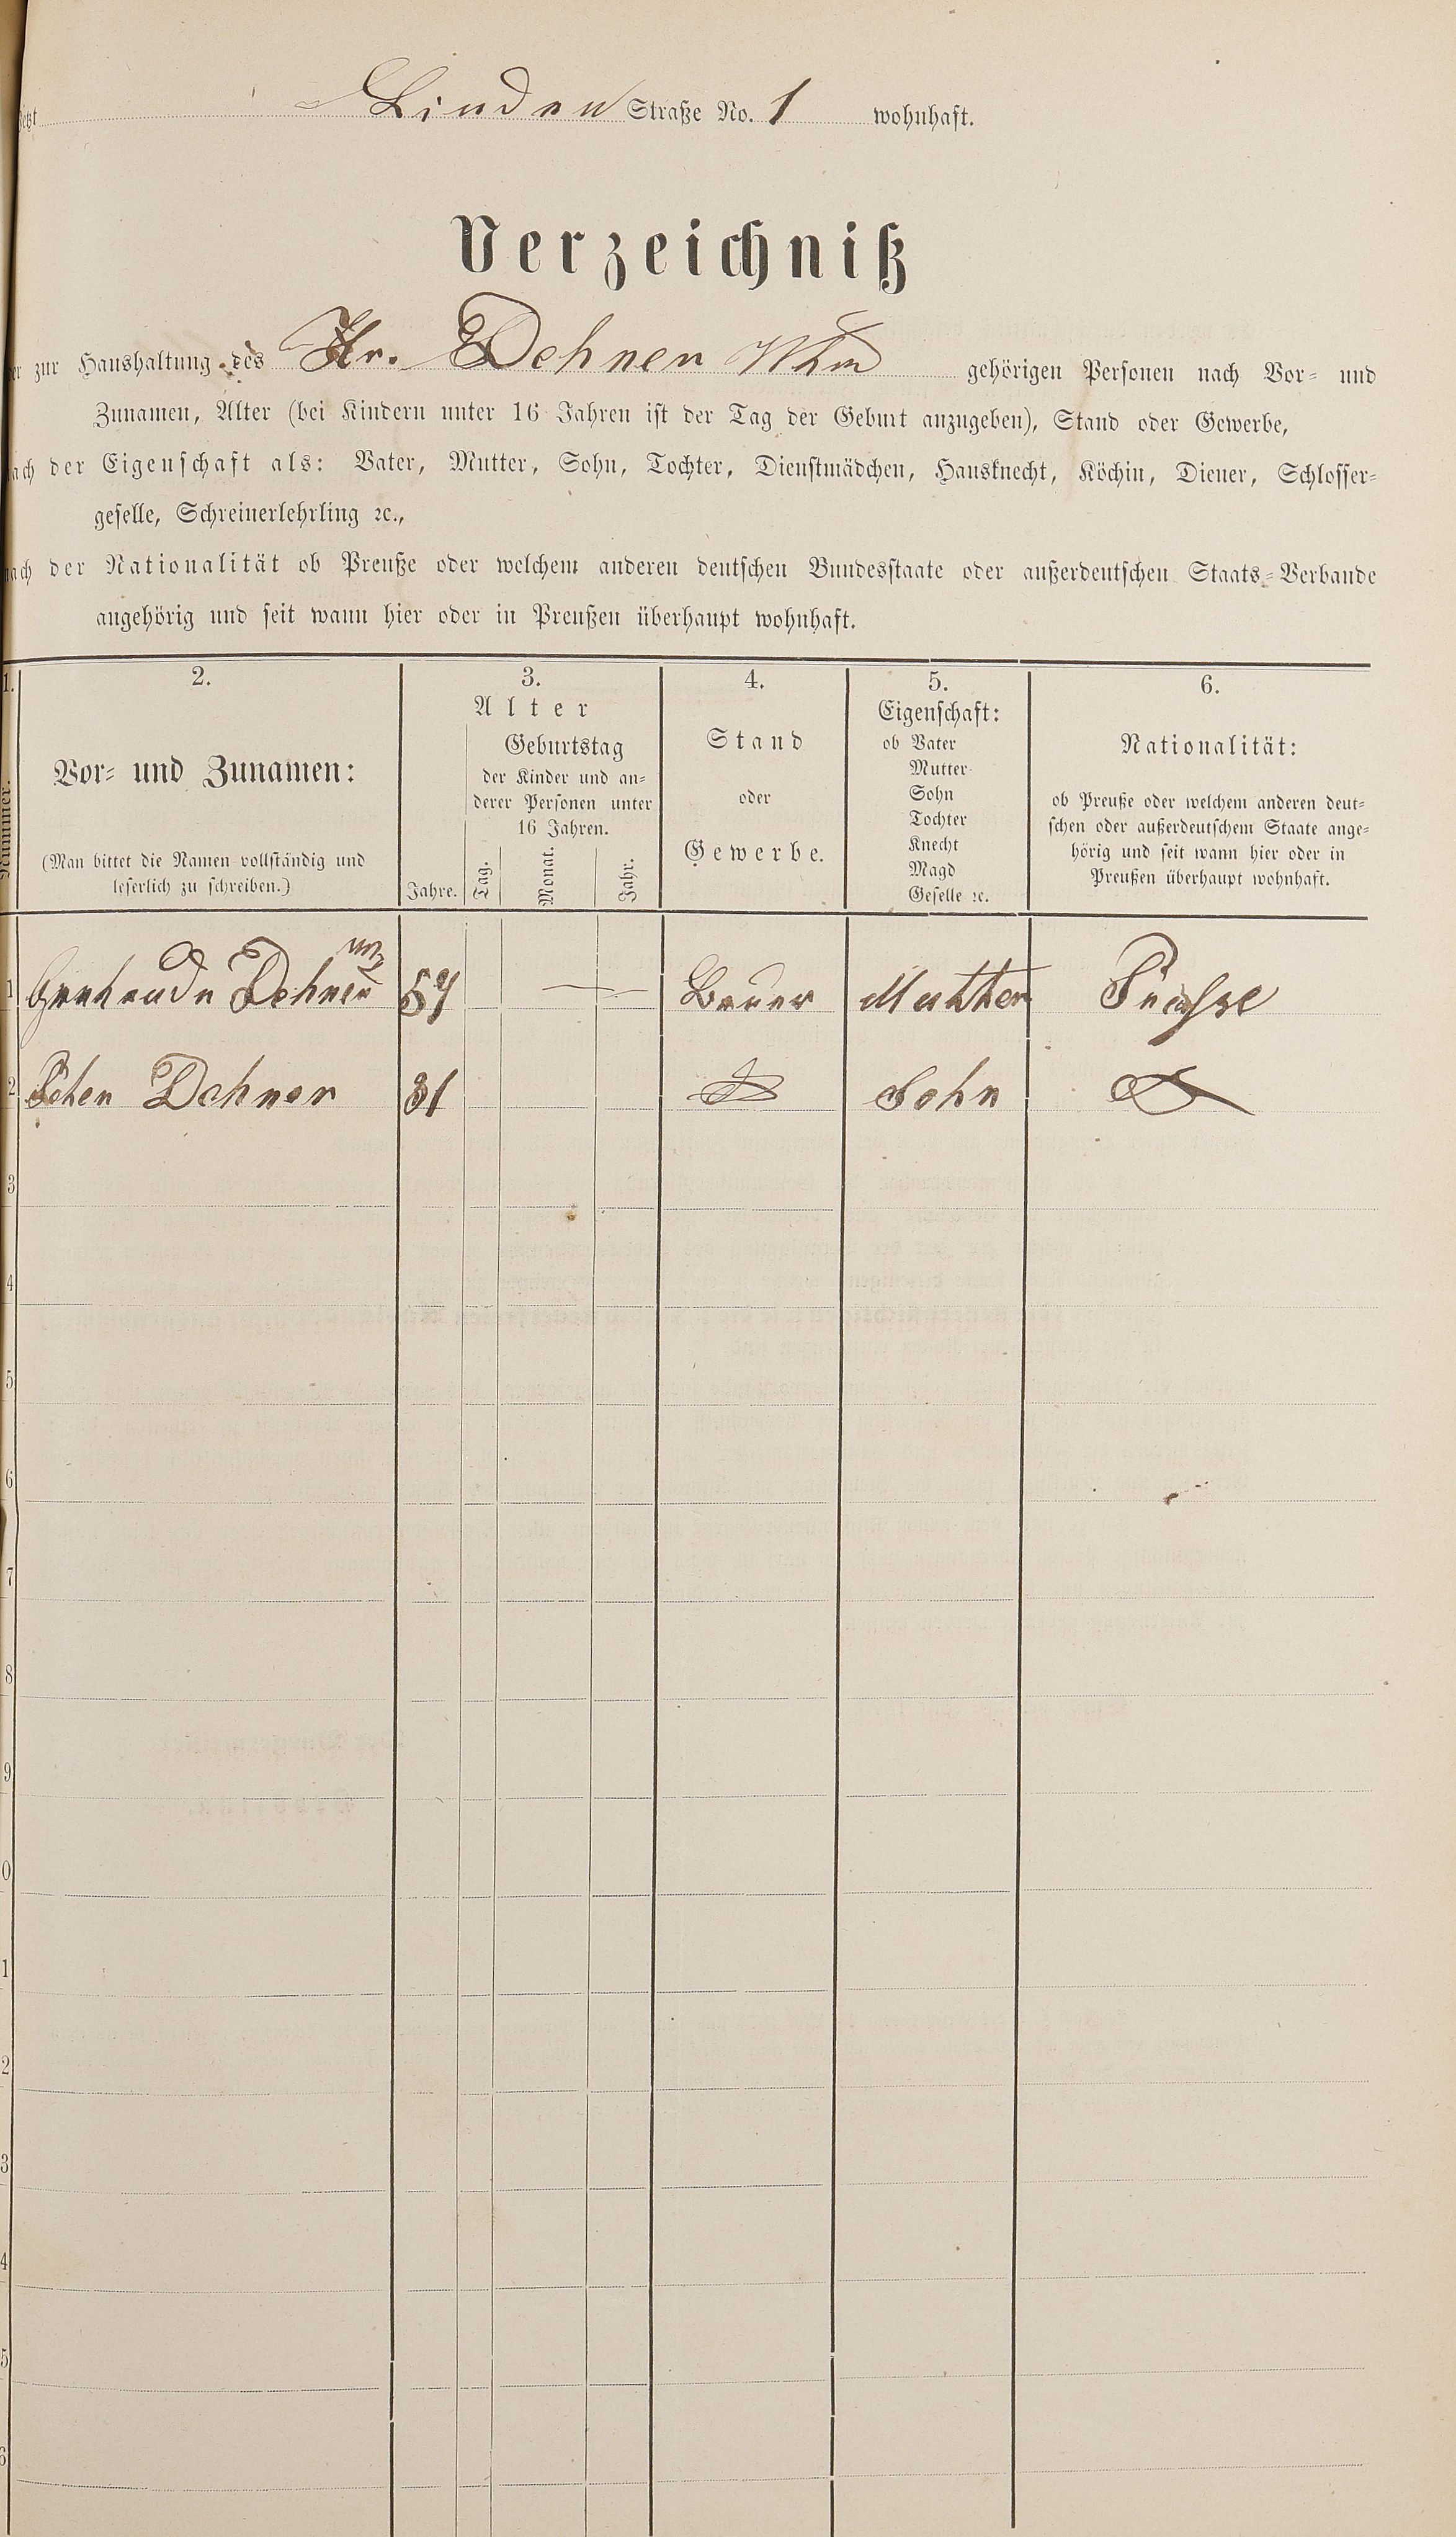 jetzt Linden Straße No. 1 wohnhaft.
Verzeichniß
der zur Haushaltung des Hr. Dehnen gehörigen Personen nach Vor- und
Zunamen, Alter (bei Kindern unter 16 Jahren ist der Tag der Geburt anzugeben), Stand oder Gewerbe,
nach der Eigenschaft als: Vater, Mutter, Sohn, Tochter, Dienstmädchen, Hausknecht, Köchin, Diener, Schlosser-
geselle, Schreinerlehrling ꝛc.,
nach der Nationalität ob Preuße oder welchem anderen deutschen Bundesstaate oder außerdeutschen Staats-Verbande
angehörig und seit wann hier oder in Preußen überhaupt wohnhaft.
1.
Nummer.
2.
Vor- und Zunamen:
(Man bittet die Namen vollständig und
leserlich zu schreiben.)
3.
Alter
Jahre.
Geburtstag
der Kinder und an-
derer Personen unter
16 Jahren.
Tag. Monat. Jahr.
4.
Stand
oder
Gewerbe.
5.
Eigenschaft:
ob Vater
Mutter
Sohn
Tochter
Knecht
Magd
Geselle ꝛc.
6.
Nationalität:
ob Preuße oder welchem anderen deut-
schen oder außerdeutschem Staate ange-
hörig und seit wann hier oder in
Preußen überhaupt wohnhaft.
1 Dehnen 57 Bauer Mutter
2 Peter Dehnen 31 Sohn
3
4
5
6
7
8
9
0
1
2
3
4
5
6